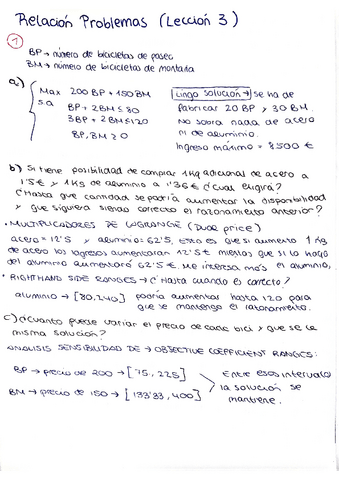 Relación Problemas (Lección 3)
1
BP → número de bicicletas de paseo
BM → número de bicicletas de montaña
a) Max 200 BP + 150 BM
s.a BP + 2BM ≤ 80
3BP + 2BM ≤ 120
BP, BM ≥ 0
Lingo solución → se ha de
fabricar 20 BP y 30 BM.
No sobra nada de acero
ni de aluminio.
Ingreso máximo = 8500 €
b) Si tiene posibilidad de comprar 1Kg adicional de acero a
15€ y 1Kg de aluminio a 1'36€ ¿cual eligirá?
¿Hasta que cantidad se podría aumentar la disponibilidad
y que siguiera siendo correcto el razonamiento anterior?
• MULTIPLICADORES DE LAGRANGE (Dual price)
acero = 12'5 y aluminio = 62'5, esto es que si aumento 1 Kg
de acero los ingresos aumentarán 12'5€ mientras que si lo hago
del aluminio aumentará 62'5 €. Me interesa más el aluminio.
• RIGHTHAND SIDE RANGES → ¿Hasta cuando es correcto?
aluminio → [80,240] podría aumentar hasta 120 para
que se mantenga el razonamiento.
c) ¿Cuánto puede variar el precio de cada bici y que se de la
misma solución?
ANÁLISIS SENSIBILIDAD DE → OBJECTIVE COEFFICIENT RANGES:
BP → precio de 200 → [75, 225]
BM → precio de 150 → [133'33, 400]
Entre esos intervalos
la solución se
mantiene.